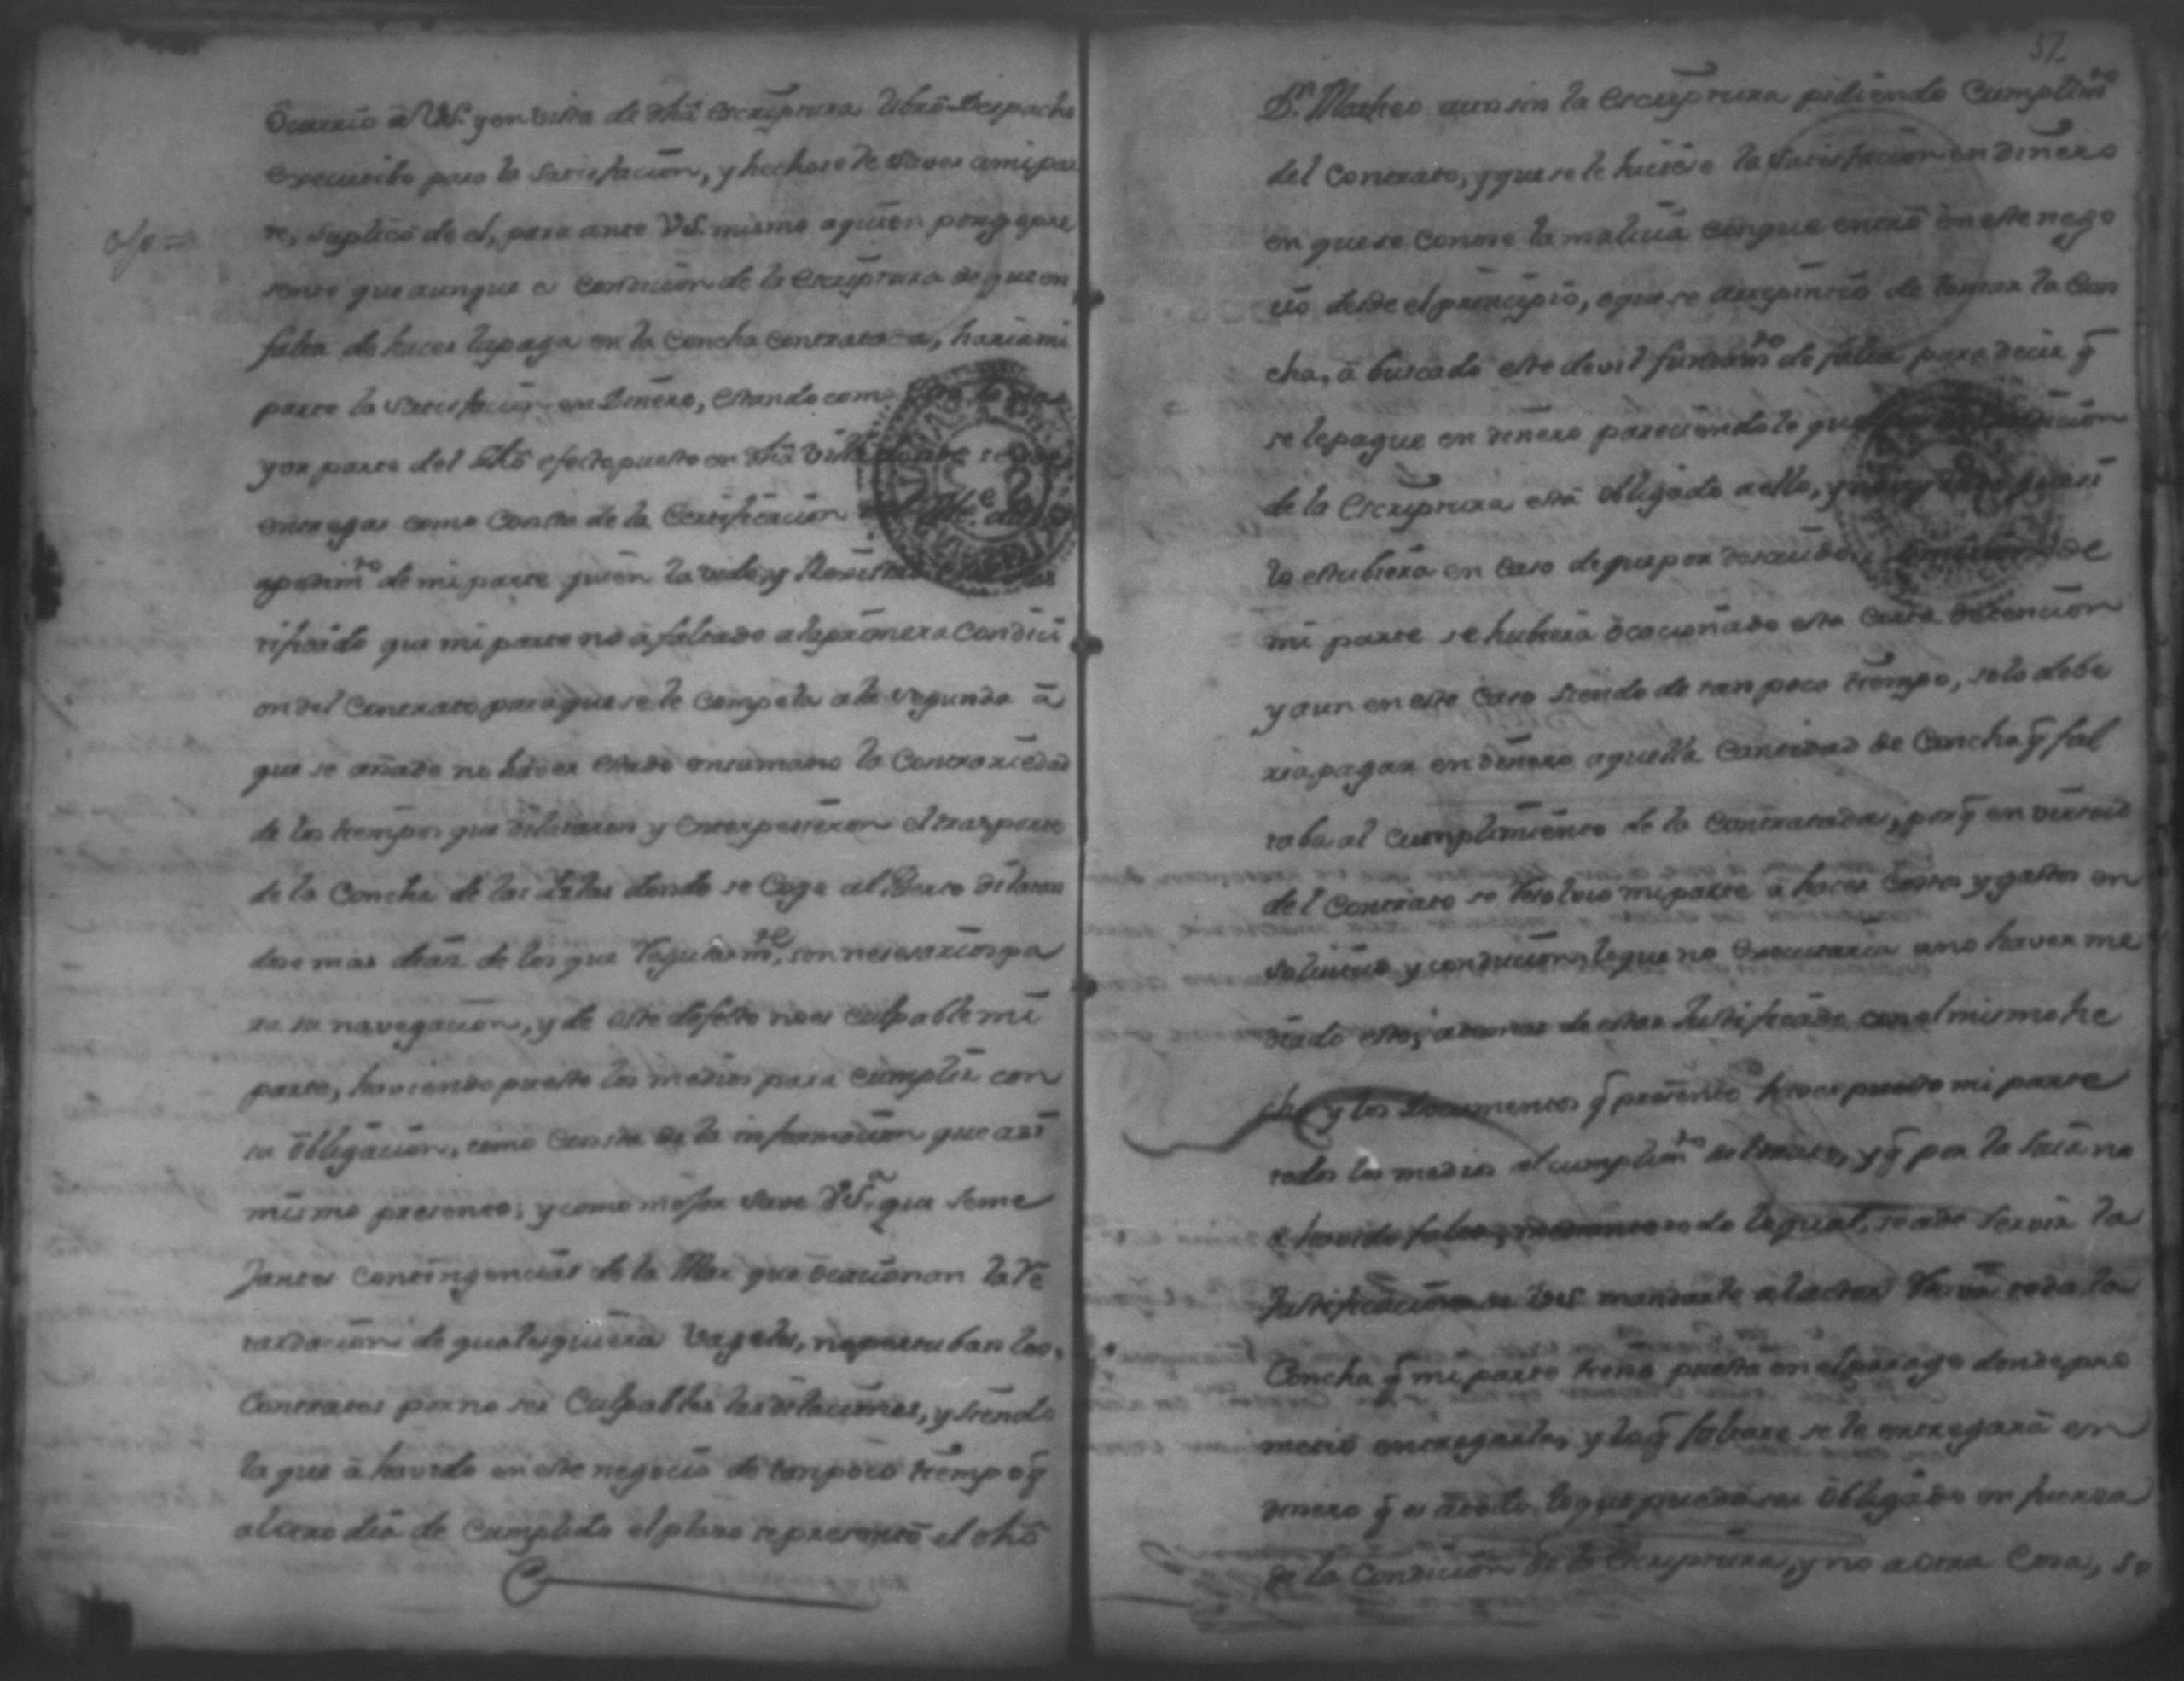 Ocurrio à VS. y en vista de dha escriptura libró Despacho
executibo para la satisfacion, y hechose de saver a mi par
te, suplicó de el, para ante VS. mismo a quien pongo pre
sente que aunque es condicion de la escriptura de que en
falta de hacer la paga en la Concha contratada, haria mi
parte la satisfacion en Dinero, estando como
yor parte del dho efecto puesto en dha Villa donde se
entregar como consta de la Certificacion
apedimto de mi parte quien la vido, y
tificado que mi parte no à faltado a la primera Condici
on del Contrato para que se le compela a la segunda à
que se añade no haver estado en su mano la Contrariedad
de los tiempos que dilataron y enterpesieron el trasporte
de la Concha de las Islas donde se Coge al Puerto dilatan
dose mas dias de los que Regularmte son nesesarios pa
ra su navegacion, y de este defecto no es culpable mi
parte, haviendo puesto los medios para cumplir con
su obligacion, como consta de la informacion que asi
mismo presento; y como mejor save VSa. que seme
jantes Contingencias de la Mar que ocacionan la re
tardacion de qualesquiera Vageles, no perturban los
Contratos por no ser Culpables las dilaciones, y siendo
la que à havido en este negocio de tan poco tiempo q̃
al otro dia de Cumplido el plazo se presentó el dho
37
Dn. Matheo aun sin la escriptura pidiendo Cumplimto
del Contrato, y que se le hiciese la satisfacion en dinero
en que se conose la malicia conque entró en este nego
cio desde el principio, o que se arrepintió de tomar la Con
cha, à buscado este devil fundamto de falta para decir q̃
se le pague en dinero pareciendole que
de la Escriptura està obligado a ello, y
lo estubiera en caso de que por descuido
mi parte se hubiera ocacionado esta corta detencion
y aun en este caso siendo de tan poco tiempo, solo debe
ria pagar en dinero aquella cantidad de Concha q̃ fal
taba al cumplimiento de la Contratada, porq̃ en virtud
del Contrato se resolvio mi parte à hacer costos y gastos en
solicitud y conducion, lo que no executaria a no haver me
diado esto; ademas de estar Justificado con el mismo he
cho y los Documentos q̃ presento haver puesto mi parte
todos los medios al cumplimto del trato, y q̃ por la suia no
à havido falta, lo qual, se ade servir la
Justificacion de VS. mandarle al actor reciva toda la
Concha q̃ mi parte tiene puesta en el parage donde pro
metió entregarla, y la q̃ faltare se le entregará en
dinero q̃ es a lo que puede ser obligado en fuerza
de la Condicion de la Escriptura, y no a otra Cosa, se